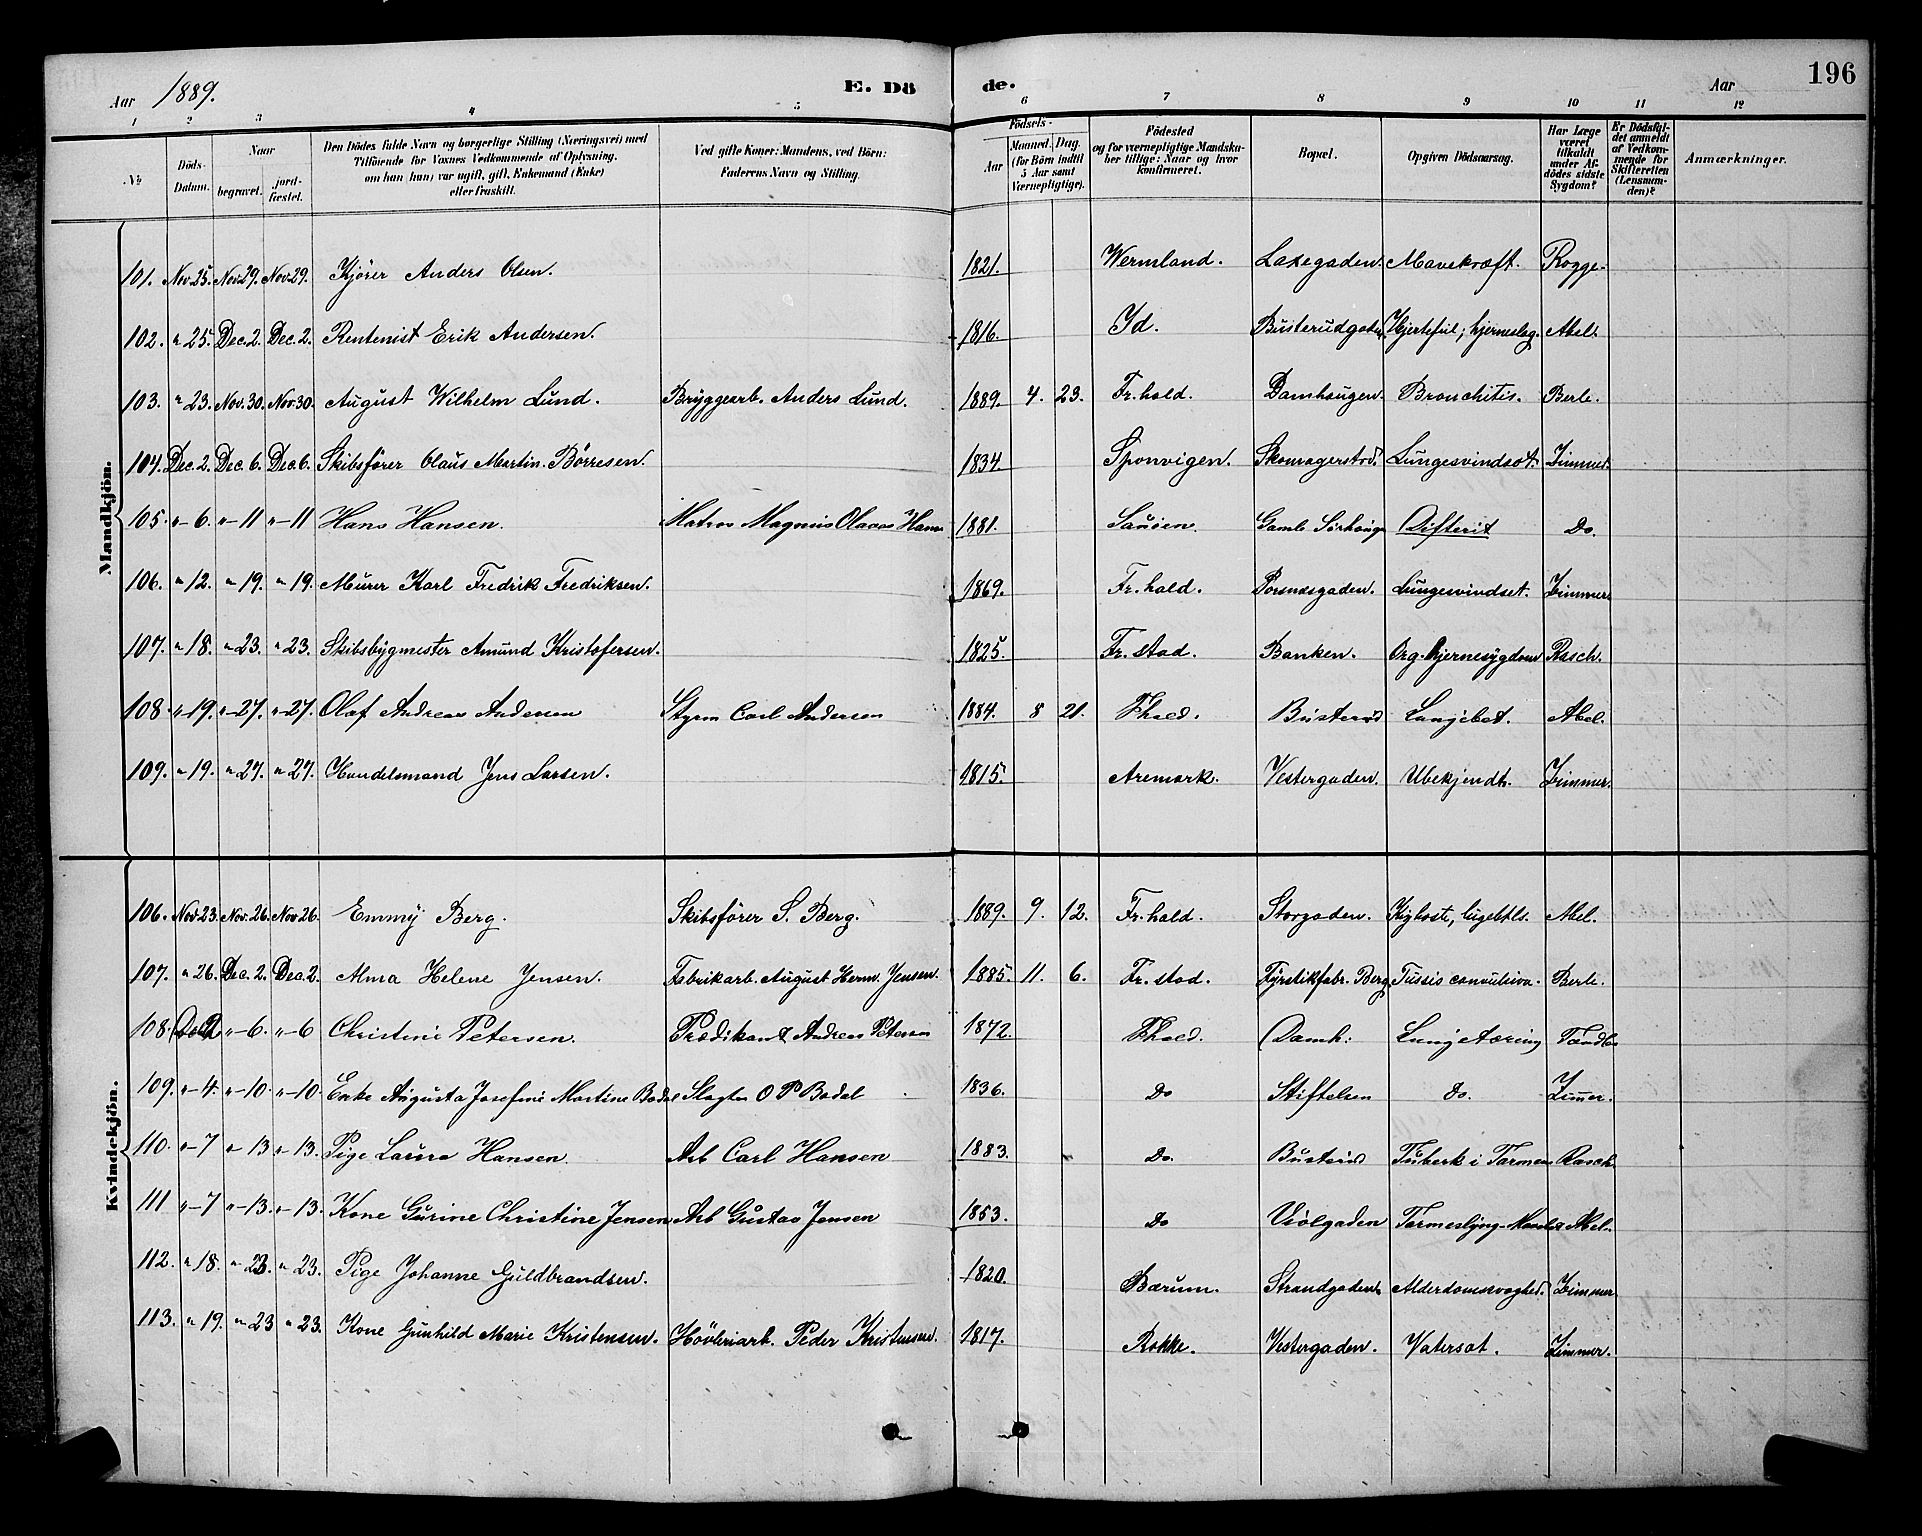 Aar 1889. E. Dö de. Aar 196
1 2 3 4 5 6 7 8 9 10 11 12
№ Döds-Datum. Naar begravet. jordfæstet. Den Dödes fulde Navn og borgerlige Stilling (Næringsvei) med Tilföiende for Voxnes Vedkommende af Oplysning, om han (hun) var ugift, gift, Enkemand (Enke) eller fraskilt. Ved gifte Koner: Mandens, ved Börn: Faderens Navn og Stilling. Födsels- Aar Maaned. Dag. (for Börn indtil 5 Aar samt Værnepligtige). Födested og for værnepligtige Mandskaber tillige: Naar og hvor konfirmeret. Bopæl. Opgiven Dödsaarsag. Har Læge været tilkaldt under Afdödes sidste Sygdom? Er Dödsfaldet anmeldt af Vedkommende for Skifteretten (Lensmanden)? Anmærkninger.
Mandkjön.
101. Nov. 25. Nov. 29. Nov. 29. Kjörer Anders Olsen. 1821. Wermland. Laxegaden. Mavekræft. Rogge.
102. " 25. Dec. 2. Dec. 2. Rentenist Erik Andersen. 1816. Id. Busterudgaden Hjertefeil; hjerneslag. Abel.
103. " 23. Nov. 30. Nov 30. August Wilhelm Lund. Bryggearb. Anders Lund. 1889. 4. 23. Fr.hald. Damhaugen. Bronchitis. Berle.
104. Dec. 2. Dec. 6. Dec. 6. Skibsförer Olaus Martin Börresen. 1834. Sponvigen. Lungesvindsot. Zimmer.
105. " 6. " 11 " 11 Hans Hansen. Matros Magnus Olavas Hans 1881. Sauöen. Gamb. Difterit Do.
106. " 12. " 19. " 19. Murer Karl Fredrik Fredriksen. 1869. Fr.hald. Lungesvindsot. Zimmer
107. " 18. " 23. " 23. Skibsbygmester Amund Kristofersen. 1825. Fr.stad. Banken. Org. hjernesygdom Rasch.
108. " 19. " 27. " 27. Olaf Andreas Andersen Styrm Carl Andersen 1884. 8 21. Fhald. Busterud Lungebet. Abel.
109. " 19. " 27. " 27. Handelsmand Jens Larsen. 1815. Aremark. Vestergaden. Ubekjendt. Zimmer.
Kvindekjön.
106. Nov. 23. Nov. 26. Nov 26. Emmy Berg. Skibsförer S. Berg. 1889. 9. 12. Fr.hald. Storgaden. Kighoste, Abel.
107. " 26. Dec. 2. Dec. 2. Alma Helene Jensen. Fabrikarb. August Herm. Jensen. 1885. 11. 6. Fr.stad. Fyrstikfabr. Berg Tussis convulsiva. Berle.
108. Dec 2. " 6. " 6 Christine Petersen. Prædikant Andreas Petersen 1872. Fhald. Damh: Lungetæring
109. " 4. " 10. " 10. Enke Augusta Josefine Martine Bodal Slagter O P Bodal 1836. Do Stiftelsen do. Zimer.
110. " 7 " 13 " 13. Pige Laura Hansen. Arb Carl Hansen 1883. Do. Busterud Tuberk i Tarmen Rasch.
111 " 7 " 13. " 13. Kone Gurine Christine Jensen Arb Gustav Jensen 1853. Do Violgaden Abel.
112. " 18. " 23. " 23. Pige Johanne Guldbrandsen. 1820. Bærum. Strandgaden. Alderdomssvaghed. Zimmer
113. " 19. " 23 " 23. Kone Gunhild Marie Kristensen. Hövleriarb. Peder Kristensen. 1817. Rokke. Vestergaden. Vatersot. Zimmer.